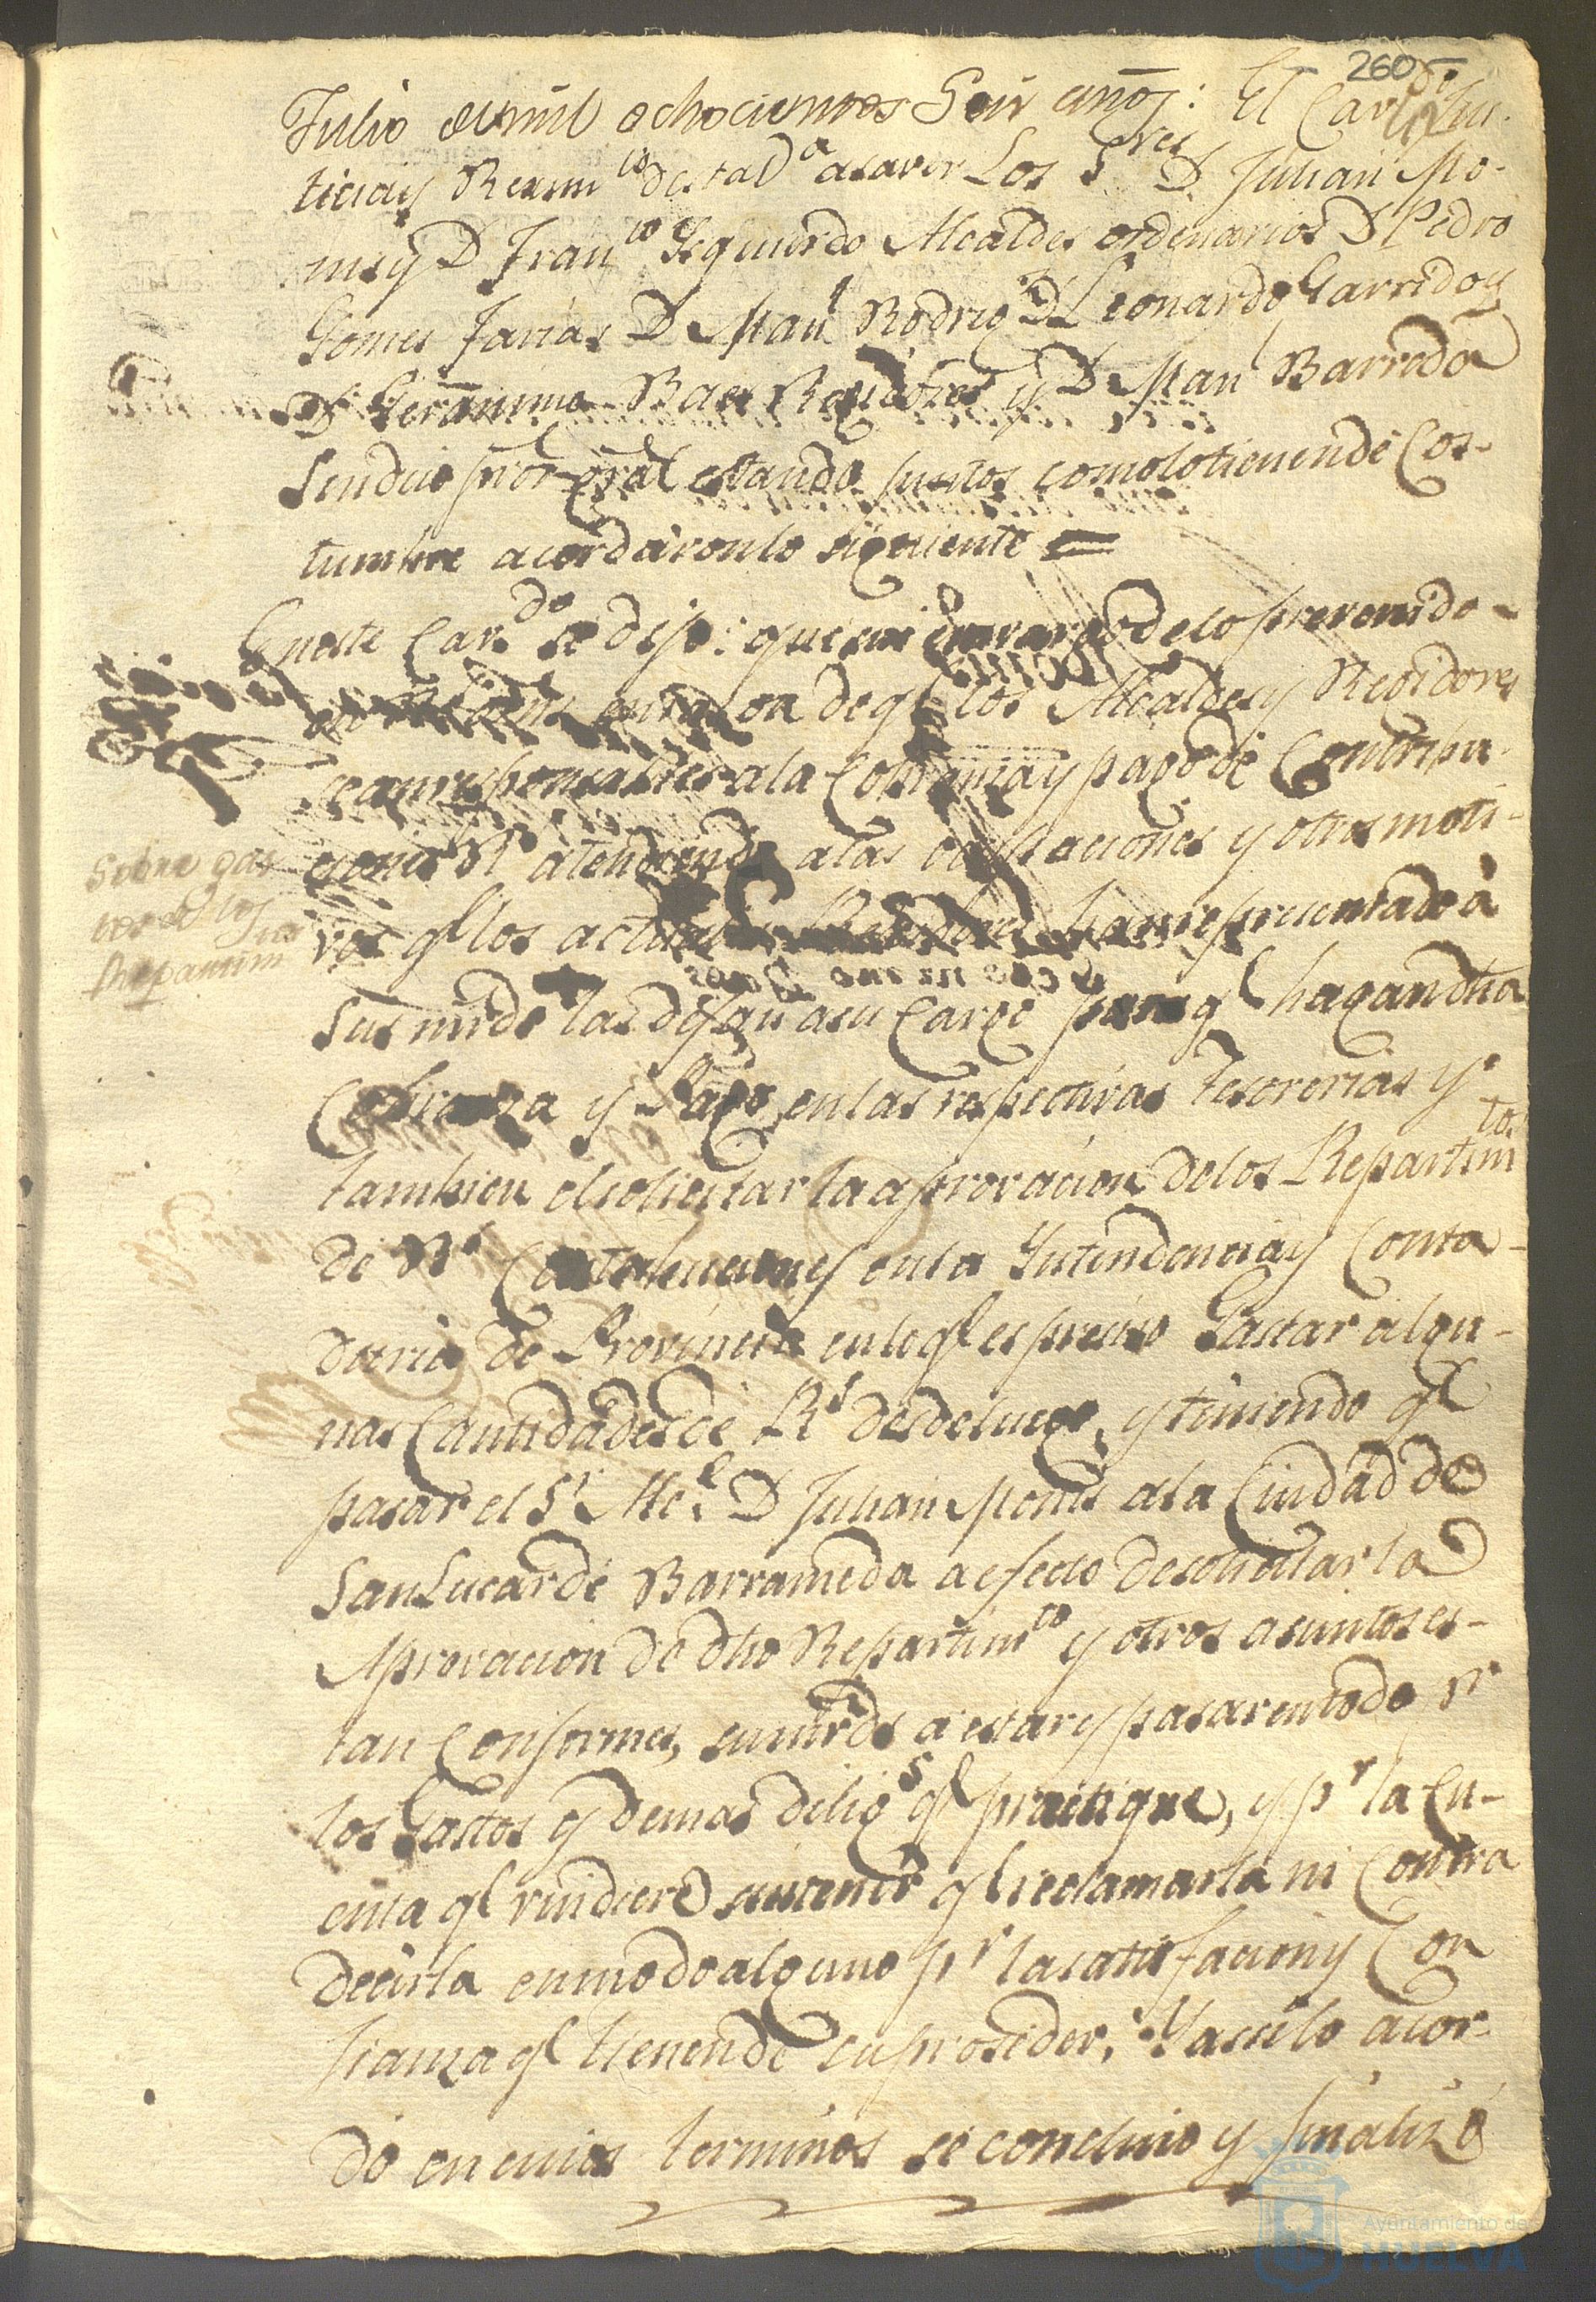 260
Julio de mil ochocientos Seis años: El Cav.do Jus-
ticia y Rexim.to de esta V.a a saver Los S.res D. Julian Mo-
nis y D. Fran.co Ysquierdo Alcaldes ordenarios D. Pedro
Gomes Farias D. Man.l Rodrig.s D. Leonardo Garrido y
D. Geranimo Baes Regidores y D. Man.l Barreda
Sindico pror gral estando juntos como lo tienen de Cos-
tumbre acordaron lo siguiente =
En este Cav.do se dijo: que sin envargo de lo prevenido
en razon de q.e los Alcaldes y Regidores
sean responsables a la Cobranza y pago de Contribu-
ciones R.s atendiendo a las ocupaciones y otros moti-
vos q.e los actuales Regidores han representado á
Sus mrds las dejan a su Cargo para q.e hagan dha
Cobranza y Pago en las respectivas Tesorerias y
tambien el solicitar la aprovacion de los Repartim.tos
de R.s Contribuciones en la Yntendencia y Conta-
duria de Provincia en lo q.e es preciso Gastar algu-
nas Cantidades de R.s desde luego, y teniendo q.e
pasar el S.r Alc.e D. Julian Monis a la Ciudad de
San Lucar de Barrameda a efecto de solicitar la
Aprovacion de dho Repartim.to y otros asuntos es-
tan Conformes, sus mrds a estar y pasar en todo p.r
los Gastos y demas dilig.s q.e practique, y p.r la Cu-
enta q.e rindiere sin tener q.e reclamarla ni Contra
decirla en modo alguno p.r la satisfacion y Con
fianza q.e tienen de su proseder, Y asi lo acor-
do en cuios terminos se concluio y finalizó
Sobre gas
tos de los
Repartim
Ayuntamiento de
HUELVA